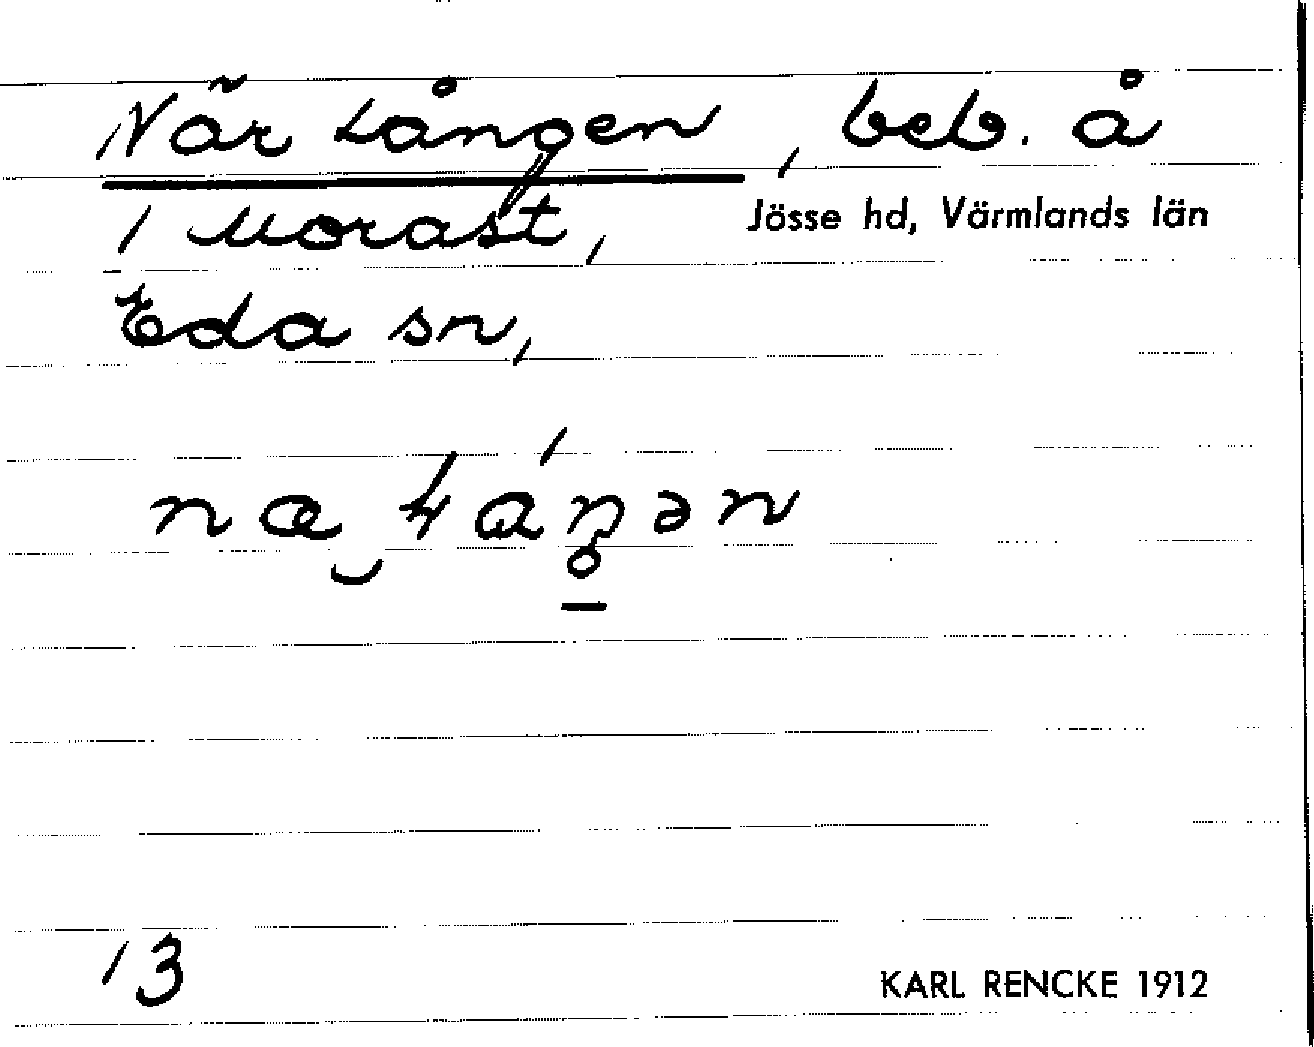 När Lången, beb. å
1 Morast, Jösse hd, Värmlands län
Eda sn,
13
KARL RENCKE 1912